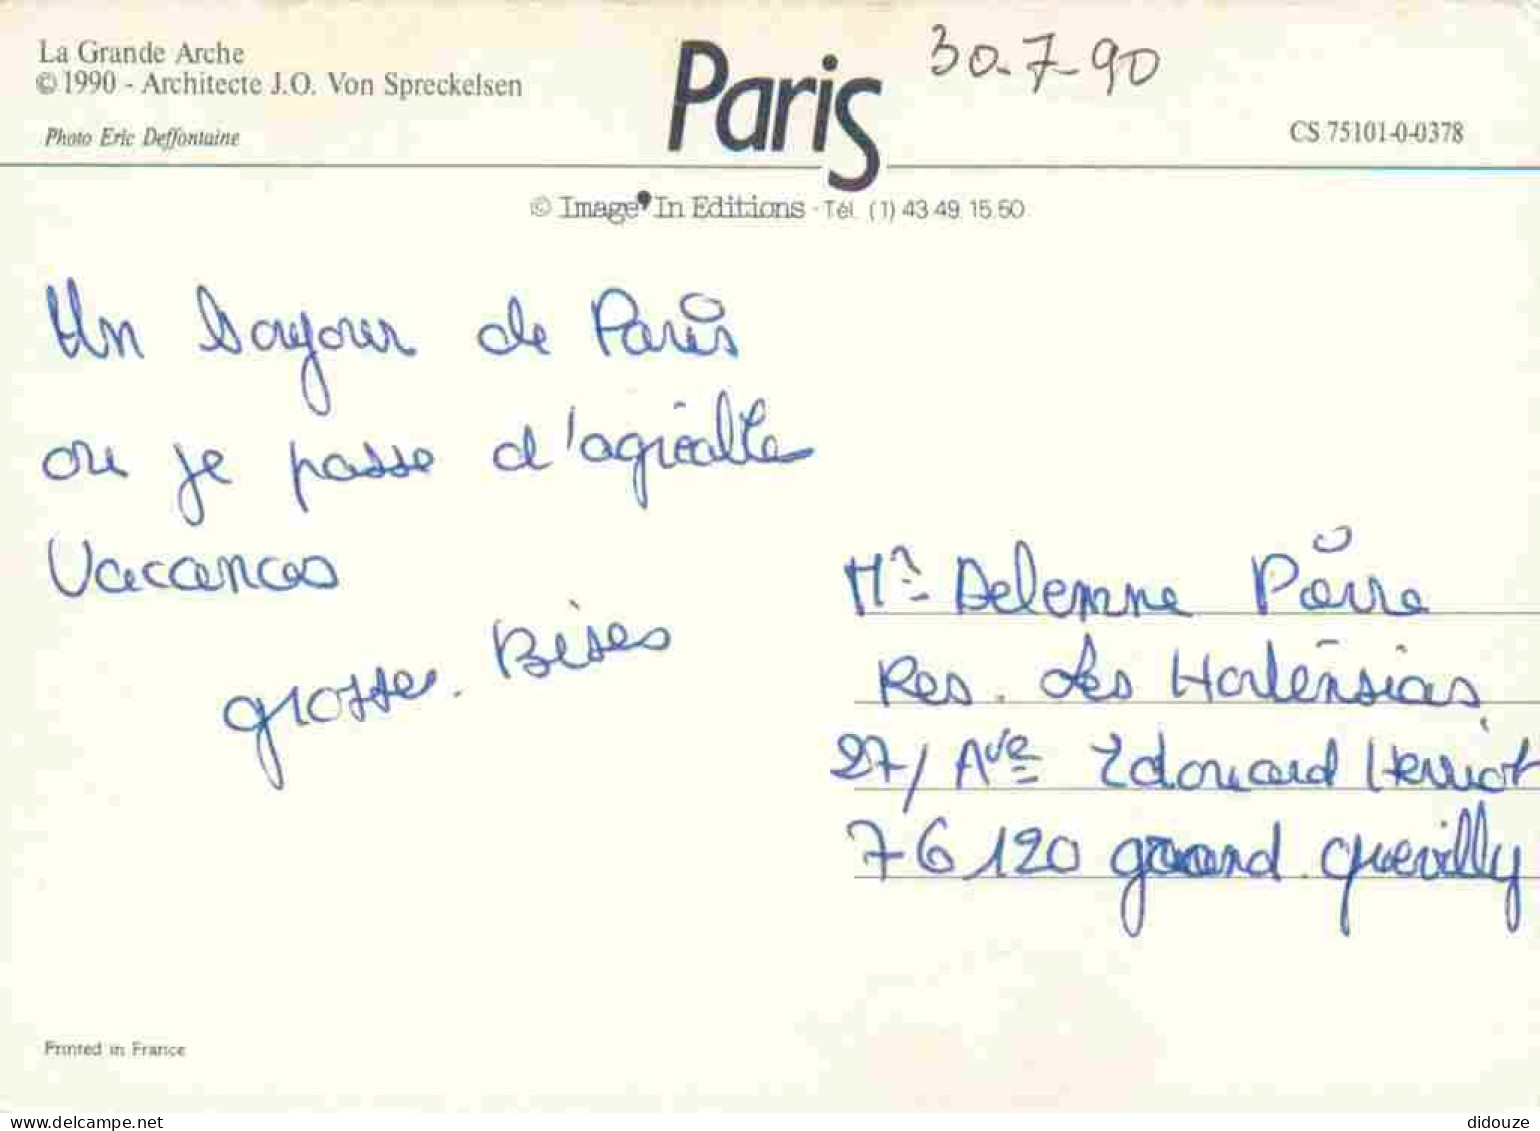 La Grande Arche
© 1990 - Architecte J.O. Von Spreckelsen
Photo Eric Deffontaine
Paris
30-7-90
CS 75101-0-0378
© Image'In Editions - Tél. (1) 43.49.15.50
Un bonjour de Paris
ou je passe d'agréable
Vacances
grosses Bises
Mr Delemne Pierre
Res. Les Hortensias
27/ Ave Edouard Herriot
76120 grand quevilly
Printed in France
www.delcampe.net
didouze